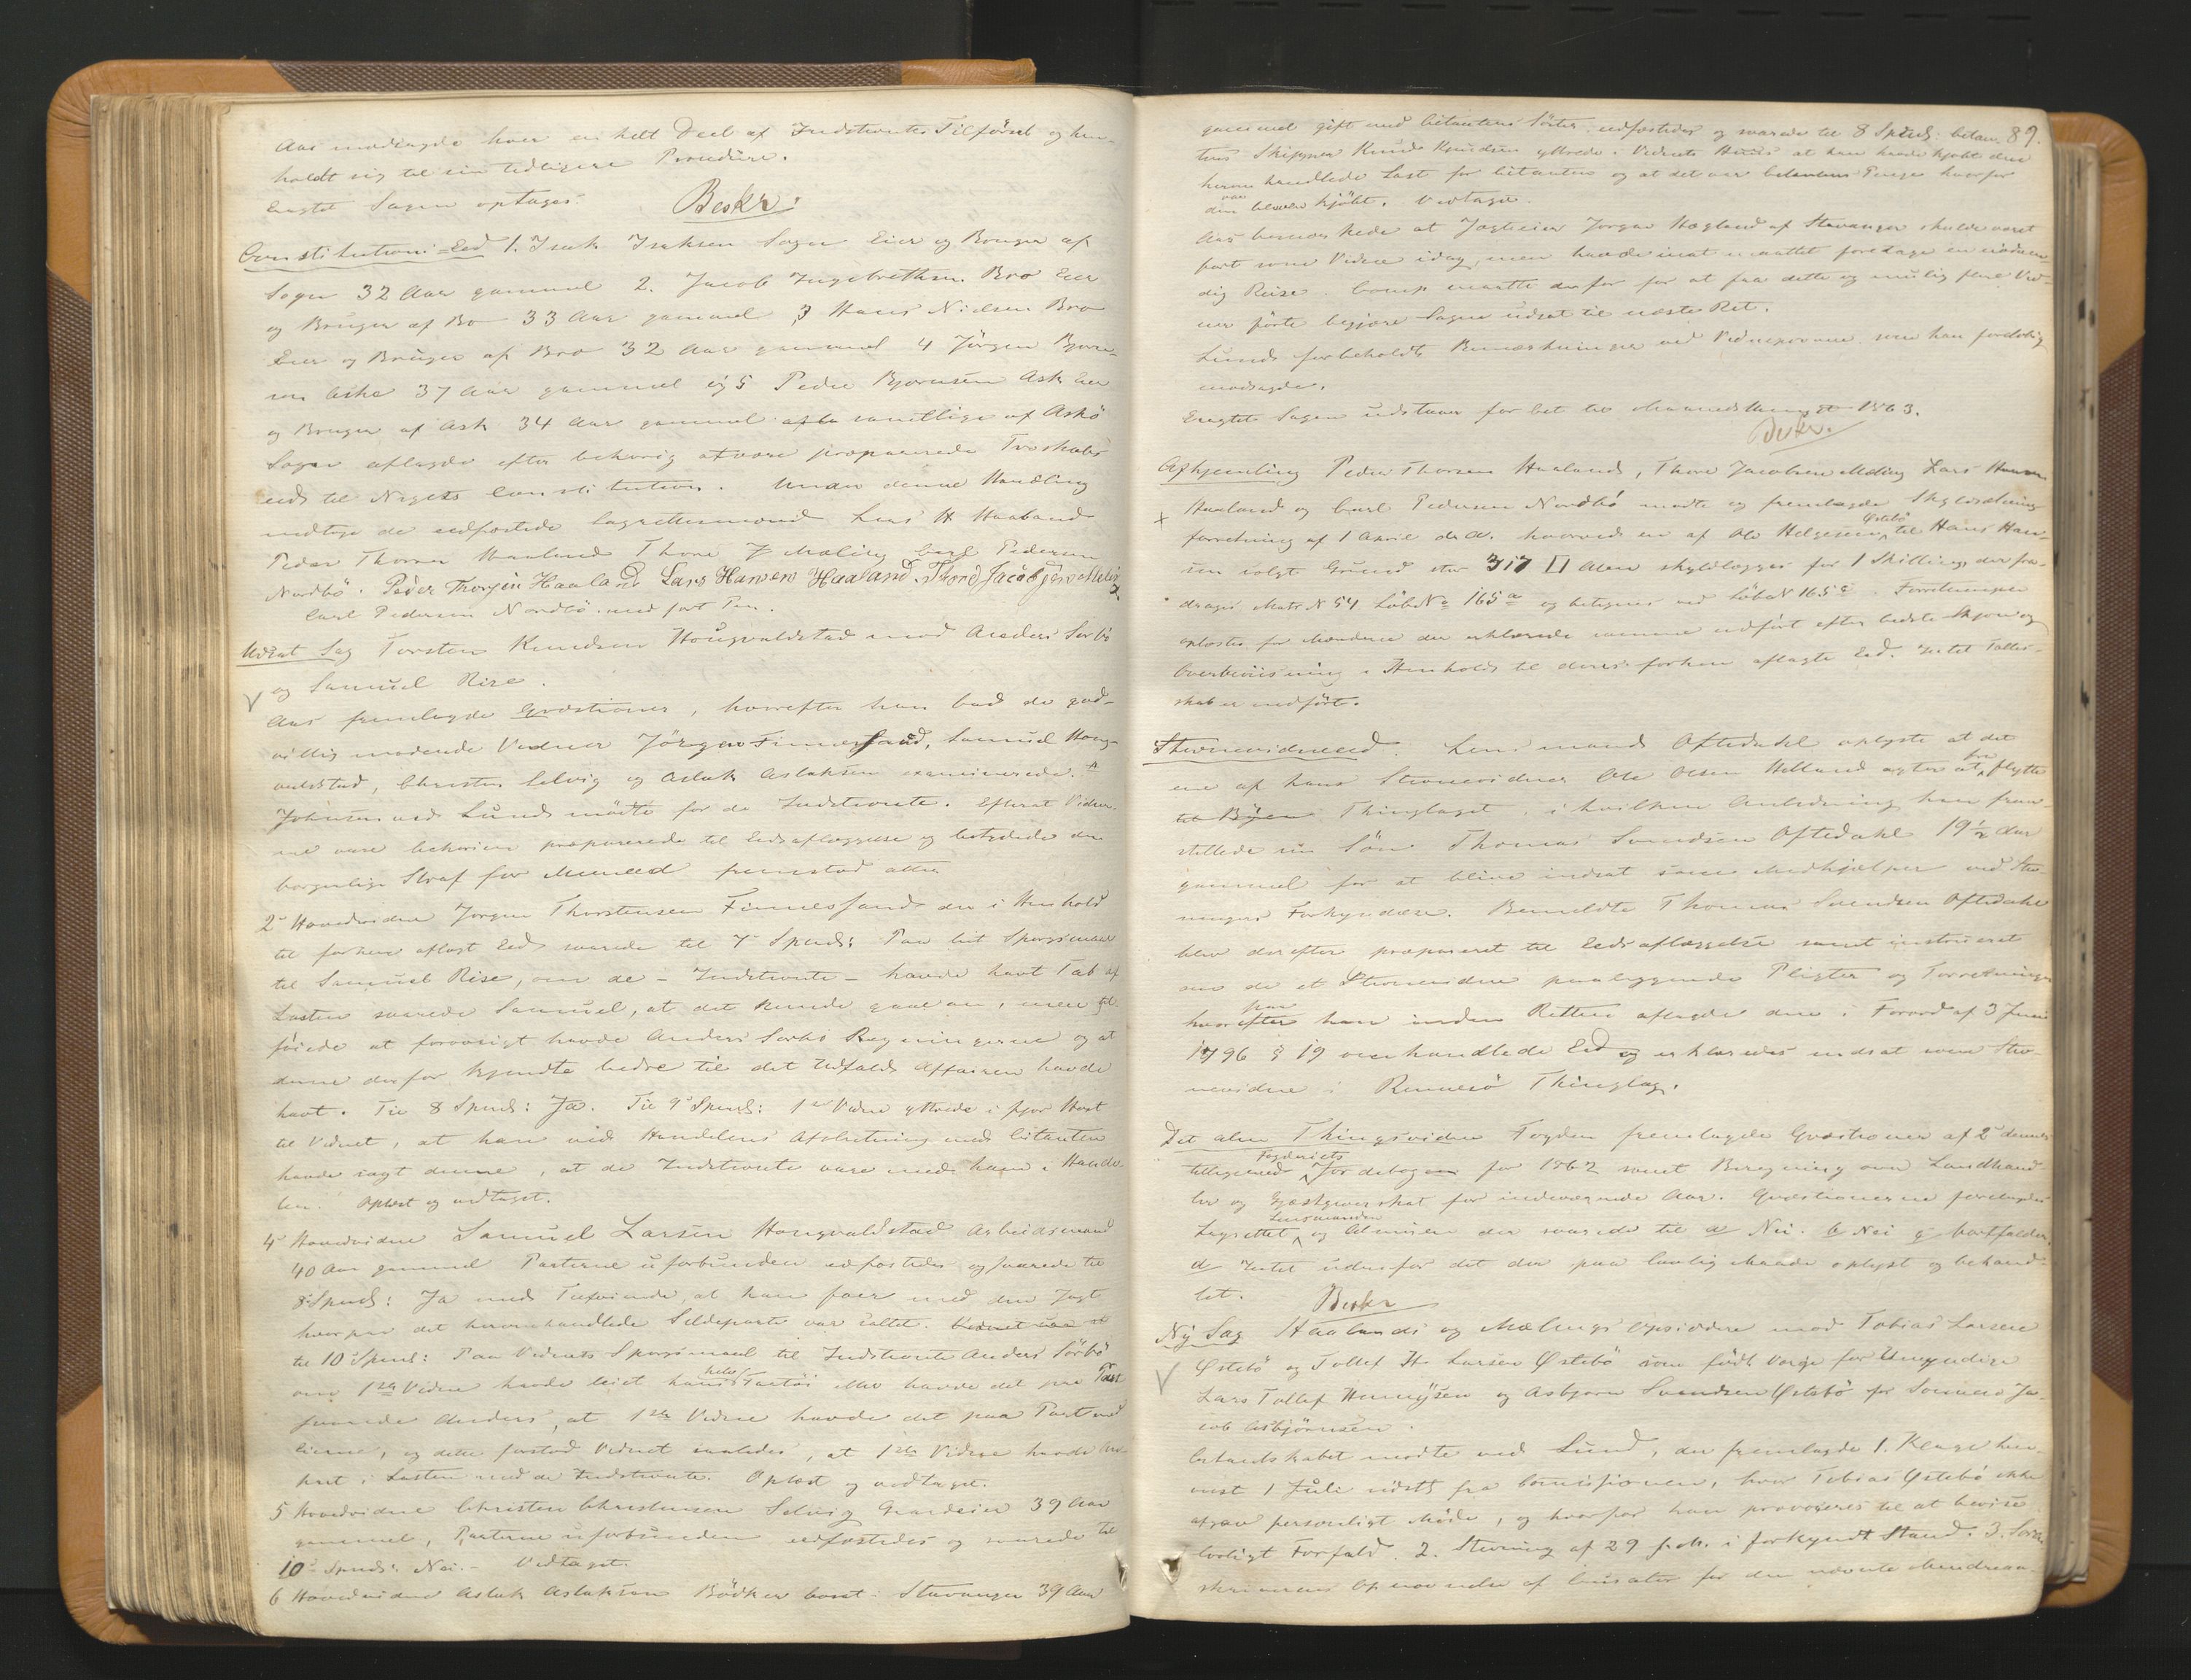 Aas modsagde hver en helt Deel af Indstevntes Tilførsel og hen-
holdt sig til sin tidligere Procedure.
Eragtet Sagen optages. Beskr:
Constitutions-Eed 1. Isak Isaksen Sogn Eier og Bruger af
Sogn 32 Aar gammel 2. Jacob Ingebrethsen Bro Eier
og Bruger af Bro 33 Aar gammel 3 Hans Nielsen Bro
Eier og Bruger af Bro 32 Aar gammel 4 Jörgen Bjørn-
sen Aske 37 Aar gammel og 5 Peder Bjørnsen Ask Eier
og Bruger af Ask 34 Aar gammel samtlige af Askø
Sogn aflagde efter behørig at være præparerede Troskabs
eed til Rigets Constitution. Under denne Handling
indtoge de eedfæstede Lagrettesmænd Lars H Haaland
Peder Thorsen Haaland Thore J Mæling Carl Pedersen
Nordbö. Peder Thorsen Haaland Lars Hansen Haaland Thore Jacobsen Meling
Carl Pedersen Nordbö med ført Pen.
Udsat Sag Torsten Knudsen Hougvaldstad mod Anders Sørbö
og Samuel Rise.
Aas fremlagde Qvæstioner, hvorefter han bad de god-
villig mødende Vidner Jörgen Finnesand, Samuel Houg-
valdstad, Christen Selvig og Aslak Aslaksen examinerede. A
Johnsen ved Lund mödte for de Indstevnte. Efterat Vidner-
ne vare behørigen præparerede til Eedsaflæggelse og betydede den
borgerlige Straf for Meneed fremstod atter
2 Hovedvidne Jörgen Thorstensen Finnesand der i Henhold
til forhen aflagt Eed svarede til 7 Spmd: Paa sit Spørgsmaal
til Samuel Rise, om de - Indstevnte - havde havt Tab af
Lasten svarede Samuel, at det kunde gaae an, men til-
føiede at forøvrigt havde Anders Sørbö Regningerne og at
denne derfor kjendte bedre til det Udfald Affairen havde
havt. Til 8 Spmd: Ja. Til 9 Spmd: 1ste Vidne yttrede i fjor Høst
til Vidnet, at han ved Handelens Afslutning med Citanten
havde sagt denne, at de Indstevnte vare med ham i Hande-
len. Oplæst og vedtaget.
4 Hovedvidne Samuel Larsen Hougvaldstad Arbeidsmand
40 Aar gammel Parterne uforbunden eedfæstedes og svarede til
8 Spmd: Ja med Tilføiende, at han foer med den Jagt
hvorpaa det heromhandlede Sildeparti var saltet.
til 10 Spmd: Paa Vidnets Spørgsmaal til Indstevnte Anders Sörbö
om 1ste Vidne havde leiet hans hele Fartöi eller havde det paa Part
svarede Anders, at 1ste Vidne havde det paa Part med
Eierne, og dette forstod Vidnet saaledes, at 1ste Vidne havde An-
part i Lasten med de Indstevnte. Oplæst og vedtaget.
5 Hovedvidne Christen Christensen Selvig Gaardeier 39 Aar
gammel, Parterne uforbunden eedfæstedes og svarede til
10 Spmd: Nei. - Vedtaget.
6 Hovedvidne Aslak Aslaksen Bödker bosat i Stavanger 39 Aar
gammel gift med Citantens Søster eedfæstedes og svarede til 8 Spmd: Citan- 89.
tens Skipper Knud Knudsen yttrede i Vidnets Huus at han havde kjøbt den
herom handlede Last for Citanten og at det var Citantens Penge hvorfor
den var bleven kjøbt. Vedtaget.
Aas bemærkede at Jagteier Jørgen Hegland af Stavanger skulde været
ført som Vidne idag, men havde inat maattet foretage en nødven-
dig Reise. Comp. maatte derfor for at faa dette og mulig flere Vid-
ner førte begjære Sagen udsat til næste Ret.
Lund forbeholdt Bemærkninger ved Vidneprovene som han foreløbig
modsagde.
Eragtet Sagen udstaaer forbet til 1863.
Beskr.
Afhjemling Peder Thorsen Haaland, Thore Jacobsen Meling Lars Hansen
Haaland og Carl Pedersen Nordbö mødte og fremlagde Skyldsætnings
forretning af 1 April d.A. hvorved en af Ole Helgesen Østebö til Hans Han-
sen solgte Grund stor 317 □ Alen skyldlægges for 1 Skilling, der fra-
drages Matr. N 54 LöbeN 165a og betegnes ved LöbeN 165c. Forretningen
oplæstes for Mændene der erklærede samme udført efter bedste Skjøn og
Overbeviisning i Henhold til deres forhen aflagte Eed. Intet Fælles-
skab er medført.
Stevnevidneeed. Lensmand Oftedahl oplyste at det
ene af hans Stevnevidner Ole Olsen Helland agter at flytte fra
Thinglaget, i hvilken Anledning han frem-
stillede sin Søn Thomas Svendsen Oftedahl 19½ Aar
gammel for at blive indsat som Medhjælper ved Stev-
ningers Forkyndelse. Bemeldte Thomas Svendsen Oftedahl
blev derefter præpareret til Eedsaflæggelse samt instrueret
om de et Stevnevidne paaliggende Pligter og Forretninger
hvorpaa han inden Retten aflagde den i Forord af 3 Juni
1796 § 19 omhandlede Eed og erklæredes indsat som Stev-
nevidne i Rennesö Thinglag.
Det alm Thingsvidne Fogden fremlagde Qvæstioner af 2 dennes
tilligemed Fogderiets Jordebogen for 1862 samt Beregning over Landhand-
ler og Gjæstgiverskat for indeværende Aar. Qvæstionerne forelagdes
Lagrettet Lensmanden og Almuen der svarede til a Nei. b Nei c bortfalder.
d Intet udenfor det der paa lovlig Maade oplyst og behand-
let. Beskr
Ny Sag Haalands og Mælings Opsiddere mod Tobias Larsen
Østebö og Tollef H. Larsen Østebö som födt Verge for Umyndige
Lars Tollef Henrijsen og Asbjørn Svendsen Østebö for Sönnen Ja-
cob Asbjörnsen.
Citantskabet mødte ved Lund, der fremlagde 1. Klage hen-
vist 1 Juli sidstl fra Comissionen, hvor Tobias Østebö ikke
afgav personligt Møde, og hvorfor han provoceres til at bevise
lovligt Forfald. 2. Stevning af 29 f.M. i forkyndt Stand. 3. Soren-
skriverens Opnævnelse af for den nævnte